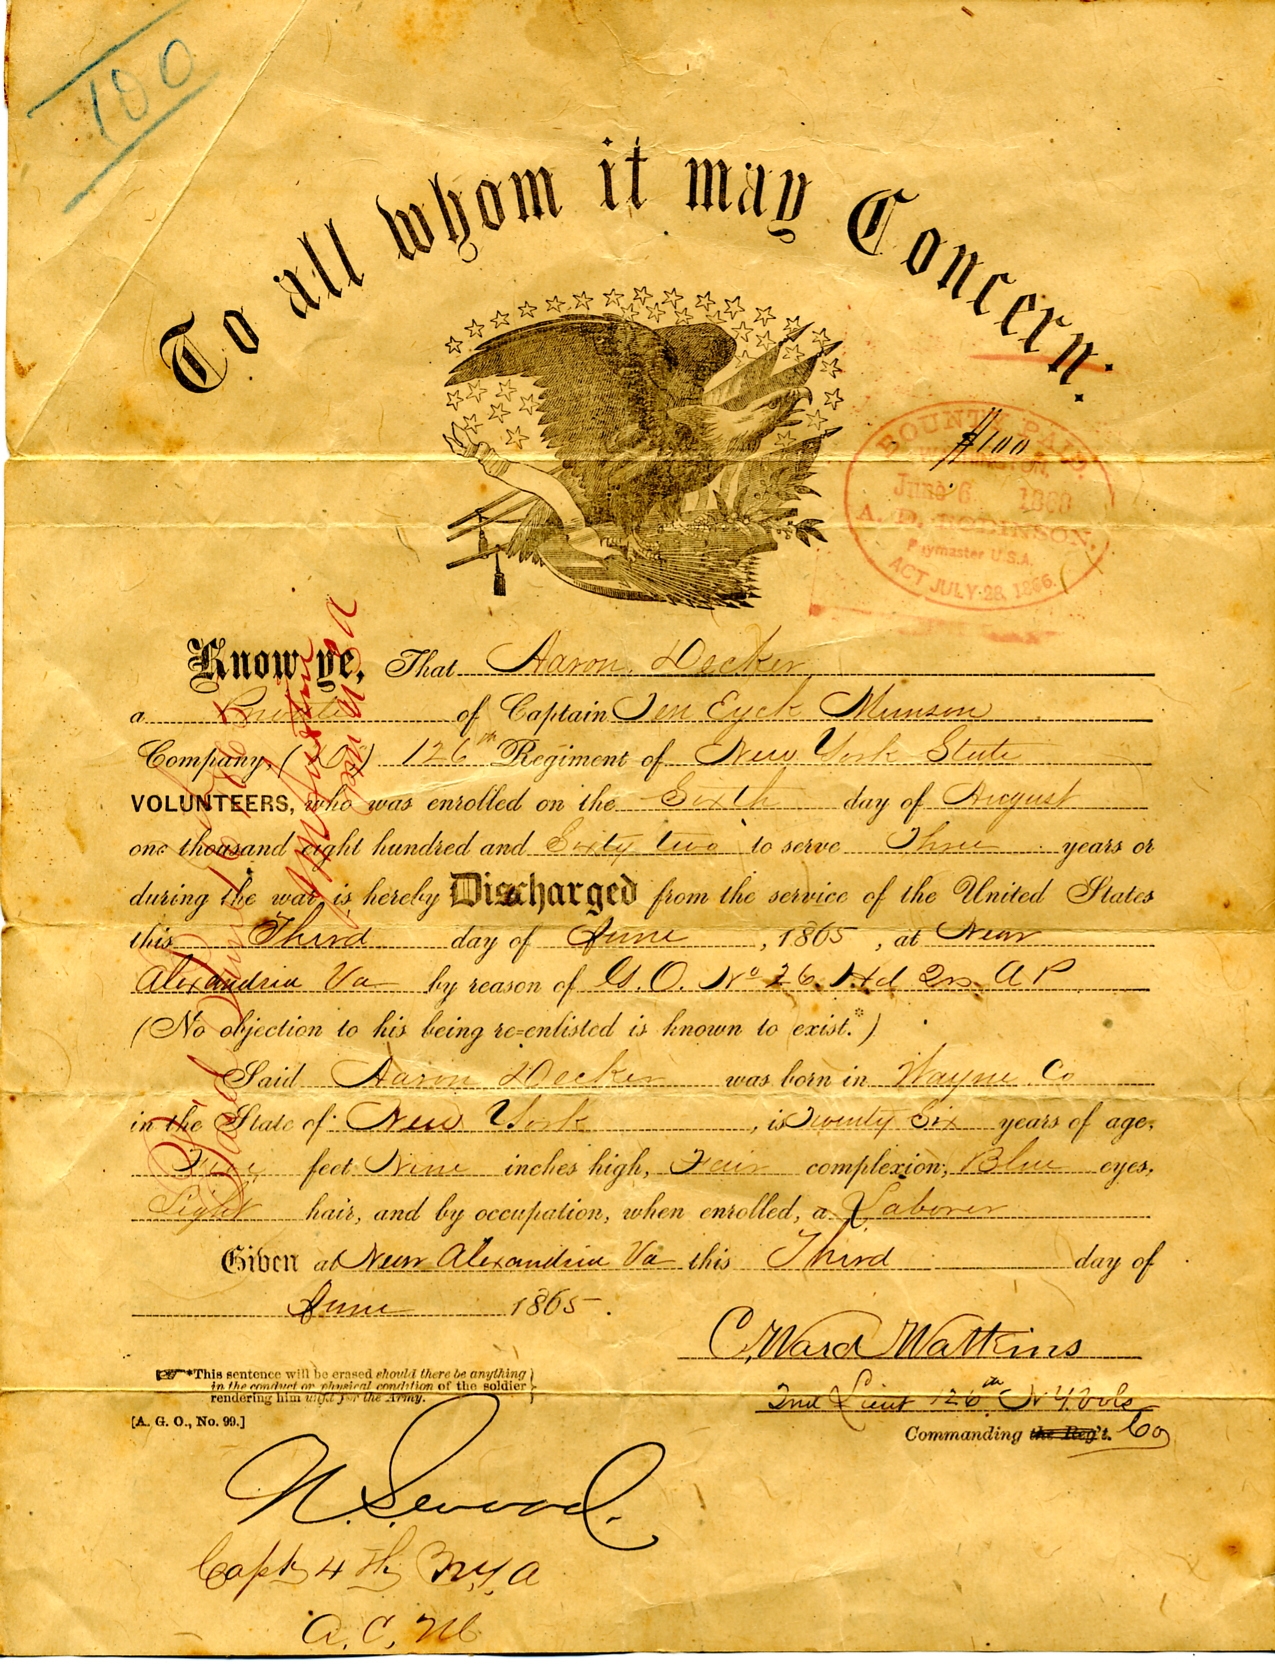 100
To all whom it may Concern:
$100
BOUNTY PAID.
WASHINGTON,
June 6
A. D. ROBINSON,
Paymaster U.S.A.
ACT JULY 28, 1866.
Know ye, That Aaron Decker
a Private of Captain Ten Eyck Munson
Company, ( ) 126th Regiment of New York State
VOLUNTEERS, who was enrolled on the Sixth day of August
one thousand eight hundred and Sixty two to serve Three years or
during the war, is hereby Discharged from the service of the United States
this Third day of June, 1865, at Near
Alexandria Va by reason of G. O. No 26. Hd Qrs A P
(No objection to his being re-enlisted is known to exist.*)
Said Aaron Decker was born in Wayne Co
in the State of New York, is Twenty Six years of age,
Five feet Nine inches high, Fair complexion, Blue eyes,
Light hair, and by occupation, when enrolled, a Laborer
Given at Near Alexandria Va this Third day of
June 1865.
C. Ward Watkins
2nd Lieut 126th N Y. Vols
Commanding the Reg't. Co
*This sentence will be erased should there be anything
in the conduct or physical condition of the soldier
rendering him unfit for the Army.
[A. G. O., No. 99.]
Capt 4th N.Y.A
A. C. M
Paid June
Paymaster